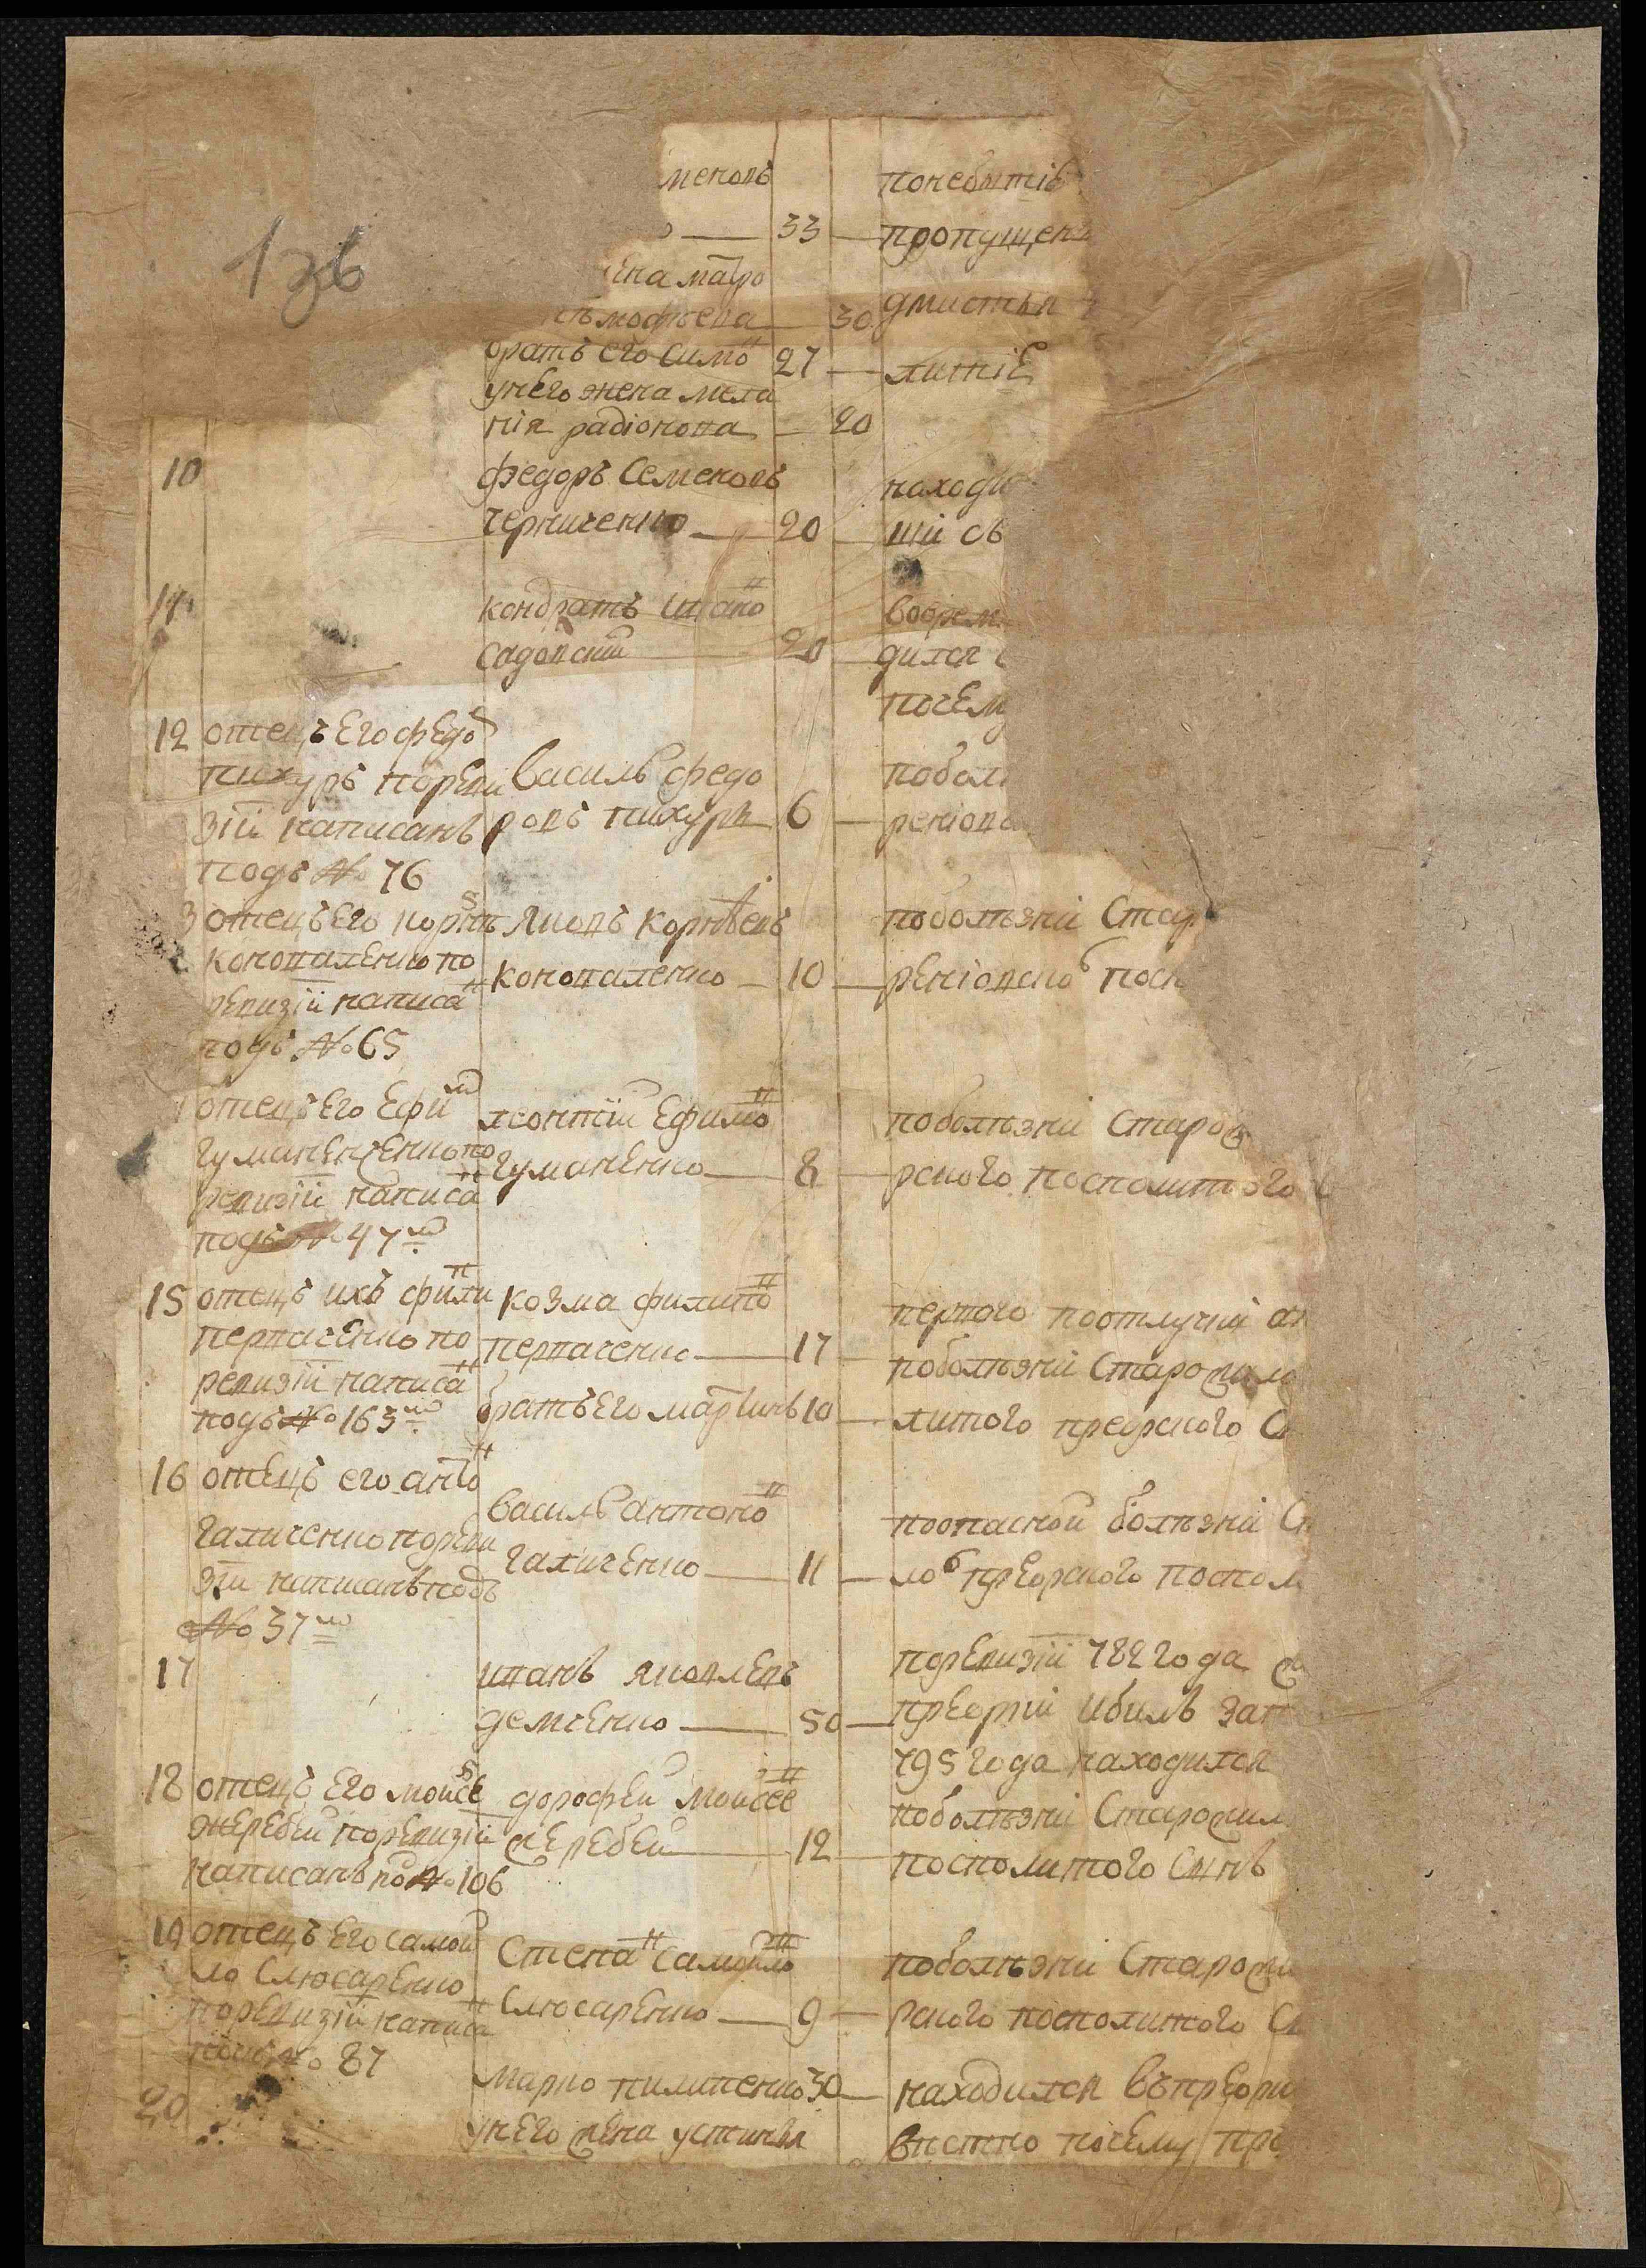 136
меновъ
33
понебытіѣ
пропущен
ена матро
30
братъ его Симо
27
литіе
унего жена мела
нія радіонова 20
10
федоръ Семеновъ
черниченко 20
находи
шіи св
кондратъ иvано
садовскій 20
вовремя
дился
почем
12 отецъ его федо
пихуръ пореви
зіи написанъ
подъ № 76
василь федо
ровъ пихуря 6
побол
реніовс
отецъ его корнѣ
коноваленко по
ревизіи написа
подъ № 65
яковъ корнѣевъ
коноваленко 10
поболѣзни Стар
реніовско посп
отецъ его Ефи
ревизіи написа
подъ № 47
леонтіи Ефимо
гуманенко 8
поболѣзни Старо
рского посполитого
15 отецъ ихъ фили
первасенко по
ревизіи написа
подъ № 163
козма филипо
первасенко 17
братъ его мартинъ 10
первого поотлучки
поболѣзни Старожил
литого преорского С
16 отецъ его анто
галиченко пореви
зіи написанъ подъ
№ 37
василь антоно
галиченко 11
поопасной болѣзни С
ло преорского поспол
17
иванъ яковлевъ
демченко 50
поревизіи 782 года
преоріи ибилъ зап
795 года находился
18 отецъ его моисе
жеребеи поревизіи
написанъ по № 106
дорофеи моисее
жеребеи 12
поболѣзни Старожил
посполитого Сынъ
19 отецъ его самои
ло Слюсаренко
поревизіи написа
№ 87
Степа самоило
Слюсаренко 9
поболѣзни Старожи
рского посполитого С
20
марко пилипенко 30
унего жена устинья
находился въпреори
вѣстно почему про